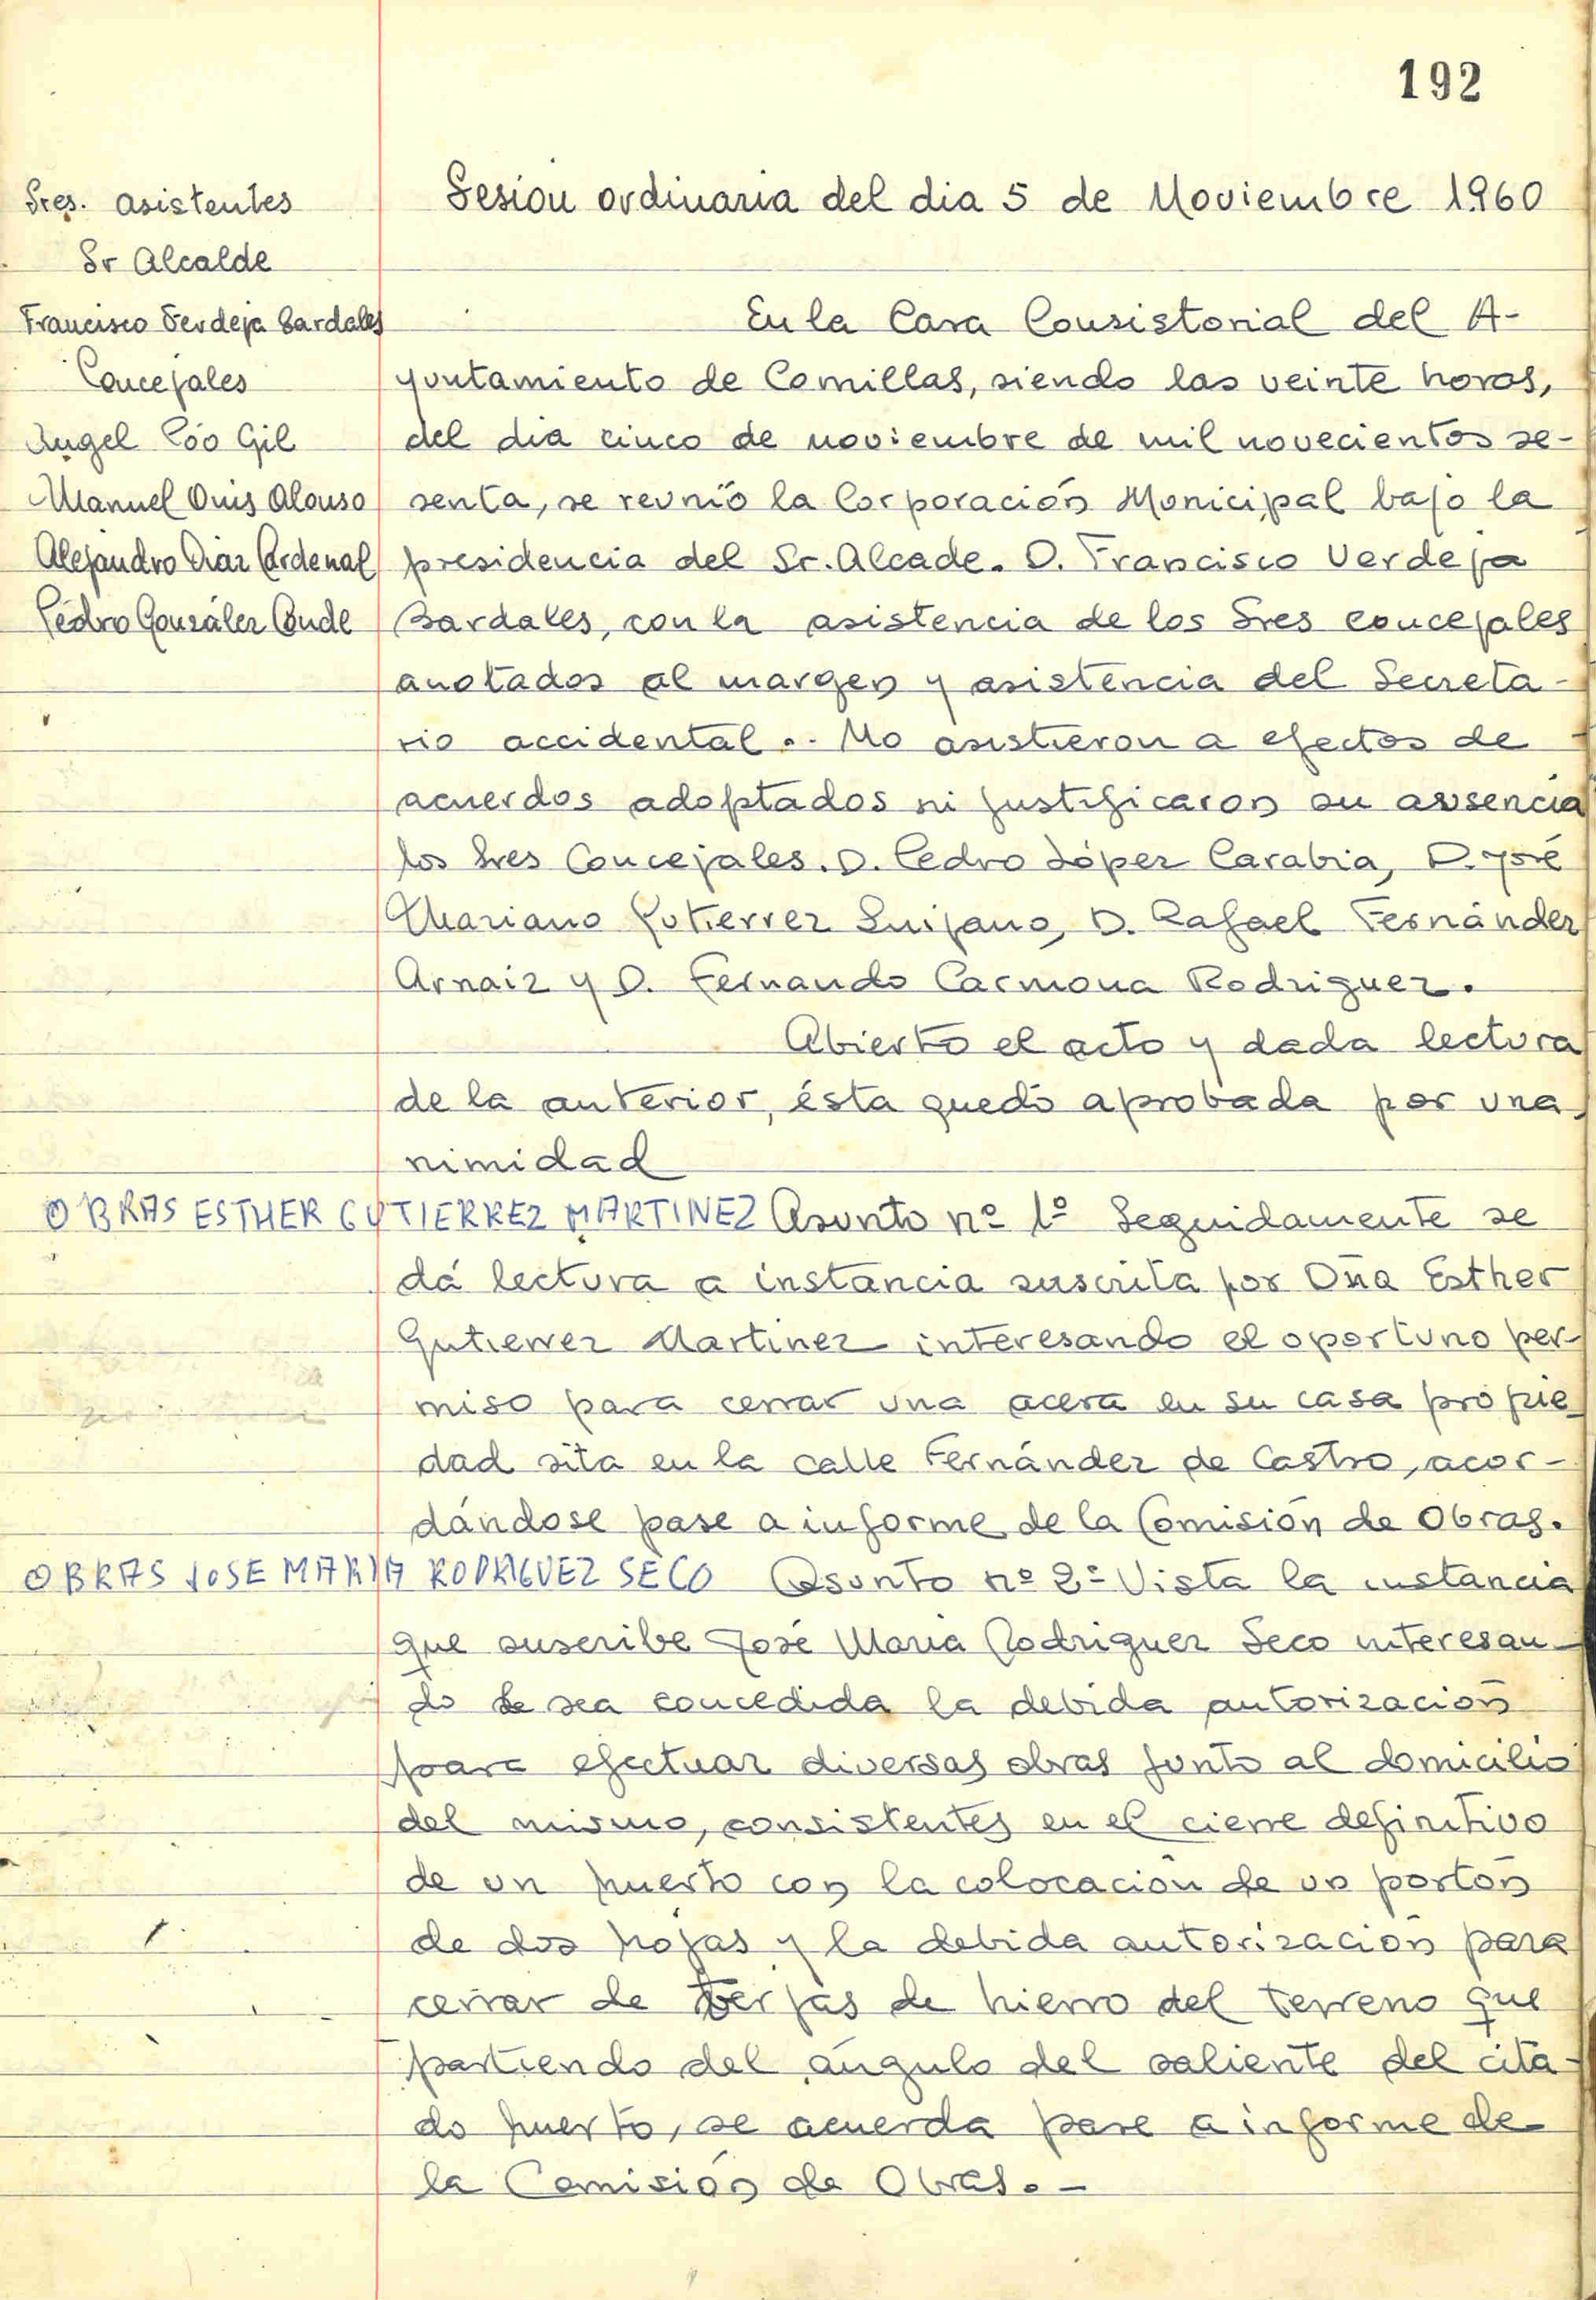 192
Sres. asistentes
Sr Alcalde
Francisco Verdeja Bardales
Concejales
Angel Póo Gil
Manuel Onis Alonso
Alejandro Diaz Cardenal
Pedro González Conde
Sesion ordinaria del dia 5 de Noviembre 1960
En la Casa Consistorial del A-
yuntamiento de Comillas, siendo las veinte horas,
del dia cinco de noviembre de mil novecientos se-
senta, se reunió la Corporación Municipal bajo la
presidencia del Sr. Alcade. D. Francisco Verdeja
Bardales, con la asistencia de los Sres concejales
anotados al margen y asistencia del Secreta-
rio accidental.. No asistieron a efectos de
acuerdos adoptados ni justificaron su ausencia
los Sres Concejales. D. Pedro López Carabia, D. José
Mariano Gutierrez Quijano, D. Rafael Fernández
Arnaiz y D. Fernando Carmona Rodriguez.
Abierto el acto y dada lectura
de la anterior, ésta quedó aprobada por una
nimidad
OBRAS ESTHER GUTIERREZ MARTINEZ Asunto nº 1º Seguidamente se
dá lectura a instancia suscrita por Dña Esther
Gutierrez Martinez interesando el oportuno per-
miso para cerrar una acera en su casa propie
dad sita en la calle Fernández de Castro, acor-
dándose pase a informe de la Comisión de Obras.
OBRAS JOSE MARIA RODRIGUEZ SECO Asunto nº 2º Vista la instancia
que suscribe José Maria Rodriguez Seco interesan-
do le sea concedida la debida autorización
para efectuar diversas obras junto al domicilio
del mismo, consistentes en el cierre definitivo
de un huerto con la colocación de un portón
de dos hojas y la debida autorización para
cerrar de verjas de hierro del terreno que
partiendo del ángulo del saliente del cita-
do huerto, se acuerda pase a informe de
la Comisión de Obras.-